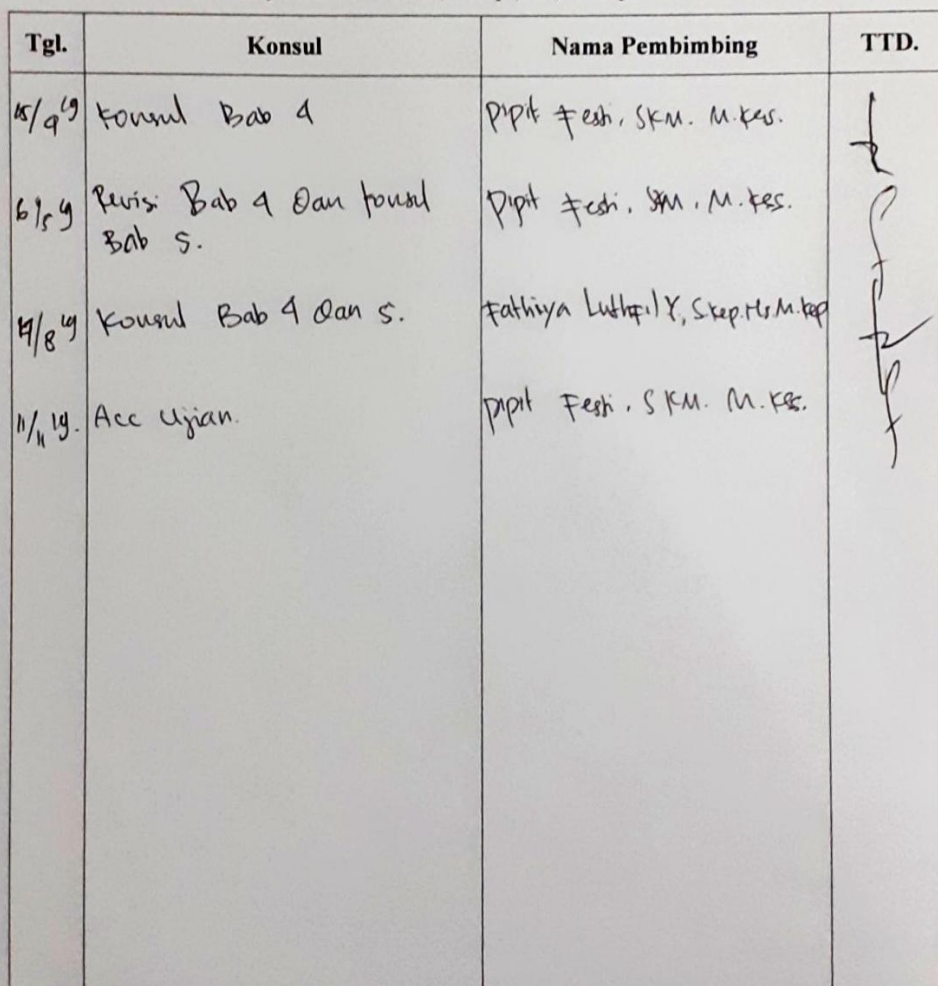 Tgl. Konsul Nama Pembimbing TTD.
Konsul Bab 4 Pipit Festi, SKM. M.Kes.
Revisi Bab 4 Dan konsul Pipit Festi, SKM, M.Kes.
Bab 5.
Konsul Bab 4 Dan 5. Fathiya Luthfil Y, S.kep.Ns.M.kep
11/11 19. Acc Ujian. Pipit Festi, SKM. M.Kes.